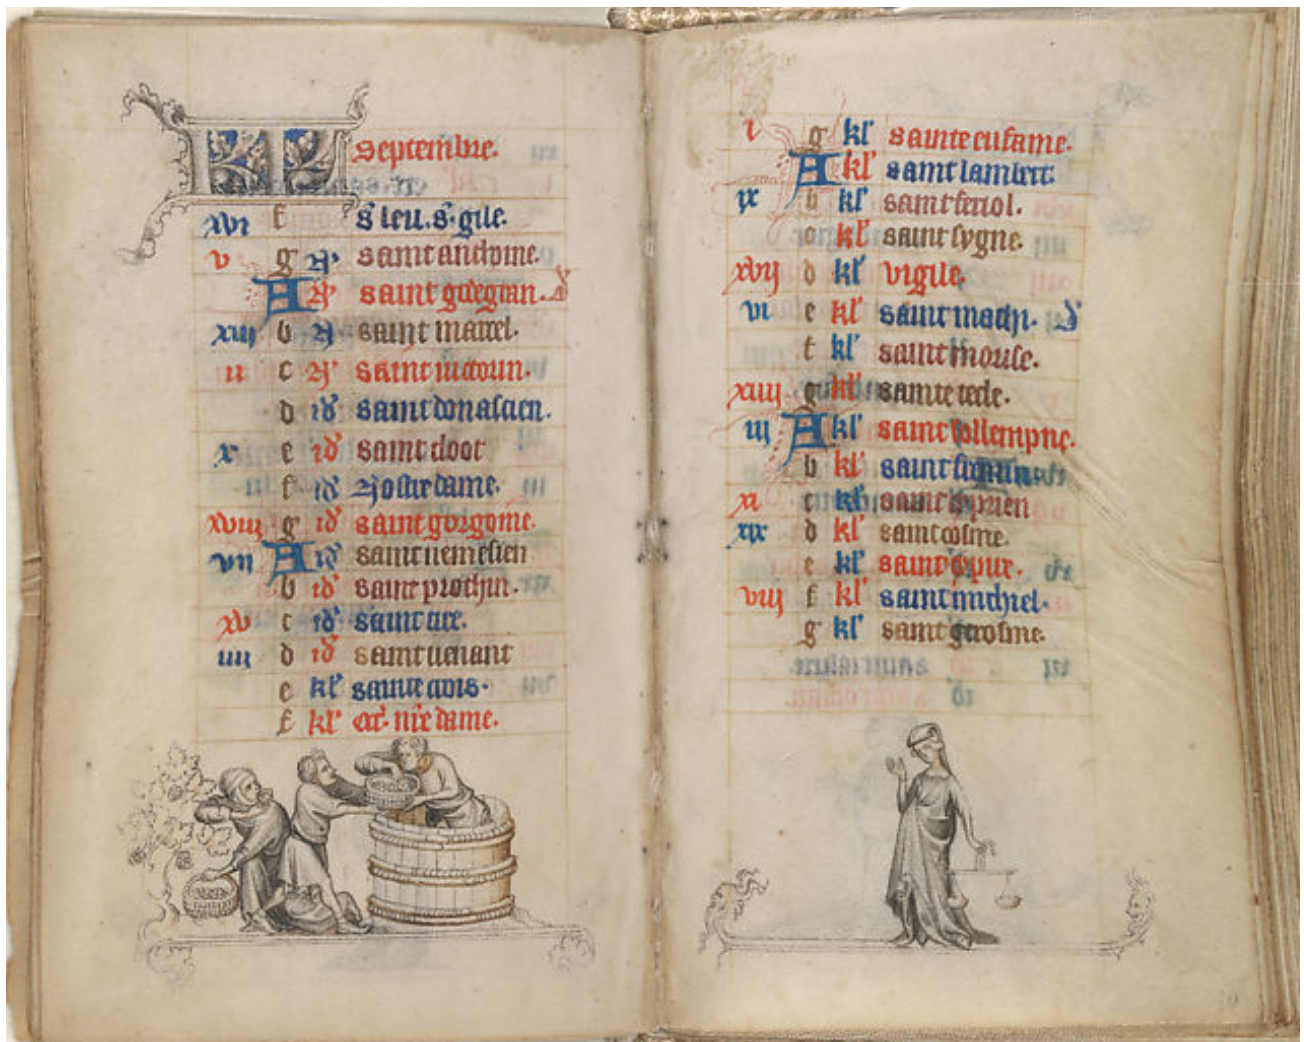 KL septembre.
xvi f s̄ leu. s̄. gile.
v g N̄ saint anthoine.
A N̄ saint
xiii b N̄ saint marcel.
ii c N̄ saint
d id saint donacien.
x e id saint cloot
f id Nostre dame.
xviii g id saint gorgonie.
vii A id saint nemesien
b id saint prothin.
xv c id saint
iiii d id saint uenant
e kl' sainte crois.
f kl' oct. nr̄e dame.
i g kl' sainte eufame.
A kl' saint lambert.
ix b kl' saint feriol.
c kl' saint sygne.
xvij d kl' vigile.
vi e kl' saint mathi.
f kl' saint mourise.
xiiij g kl' sainte tecle.
iij A kl' saint sollempne.
b kl' saint firmin.
xi c kl' saint ciprien
xix d kl' saint cosme.
e kl' saint
viij f kl' saint michiel.
g kl' saint gerosme.